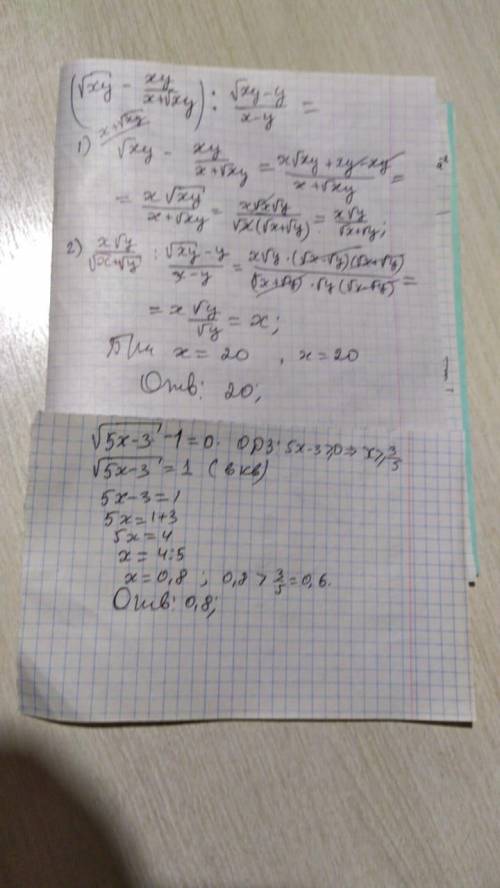 (√xy - xy/(x+√xy)) : (√xy-y)/(x-y) =
1) x+√xy/ √xy - xy/(x+√xy) = (x√xy+xy-xy)/(x+√xy) =
= x√xy/(x+√xy) = x√x√y/(√x(√x+√y)) = x√y/(√x+√y);
2) x√y/(√x+√y) : (√xy-y)/(x-y) = x√y·(√x-√y)(√x+√y)/((√x+√y)·√y(√x-√y)) =
= x √y/√y = x;
При x=20 , x=20
Отв: 20;
√5x-3 -1=0. ОДЗ: 5x-3≥0⇒ x≥3/5
√5x-3 =1 (в кв)
5x-3=1
5x=1+3
5x=4
x=4:5
x=0,8 ; 0,8 > 3/5=0,6.
Отв: 0,8;